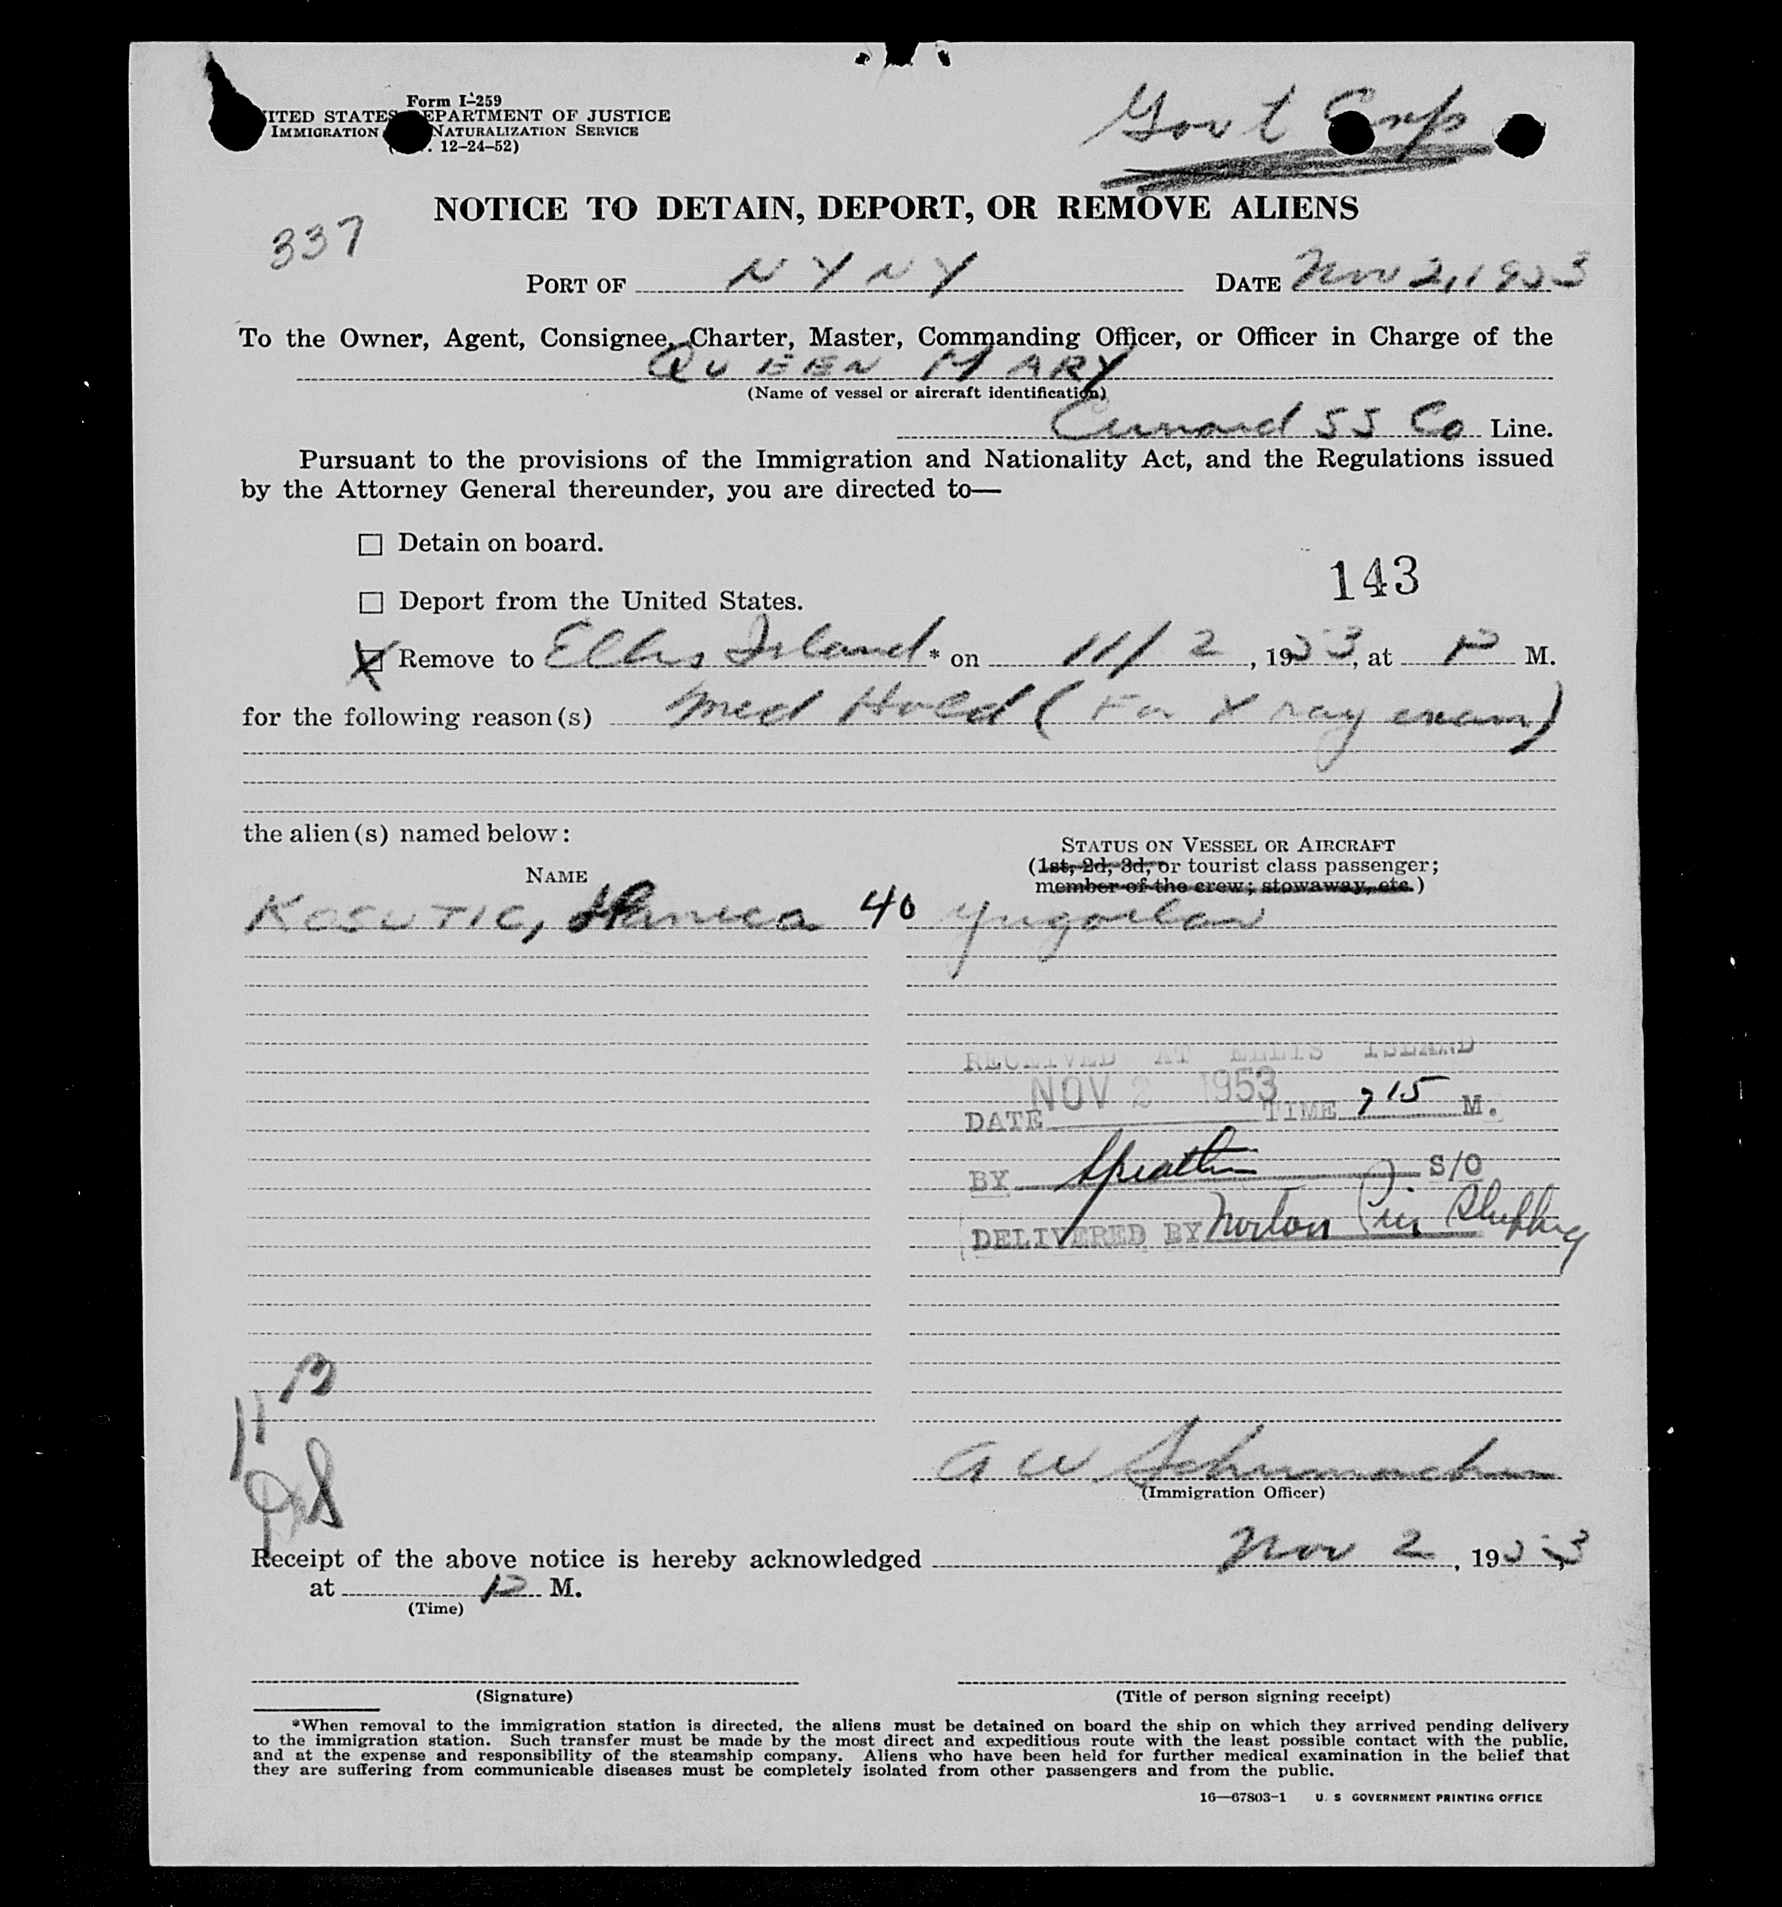 Form I-259
ITED STATES EPARTMENT OF JUSTICE
IMMIGRATION NATURALIZATION SERVICE
12-24-52)
Govt Exp
NOTICE TO DETAIN, DEPORT, OR REMOVE ALIENS
337
PORT OF N Y N Y DATE Nov 2, 1953
To the Owner, Agent, Consignee, Charter, Master, Commanding Officer, or Officer in Charge of the
QUEEN MARY
(Name of vessel or aircraft identification)
Cunard SS Co Line.
Pursuant to the provisions of the Immigration and Nationality Act, and the Regulations issued
by the Attorney General thereunder, you are directed to—
Detain on board.
143
Deport from the United States.
X Remove to Ellis Island* on 11/2, 1953, at P M.
for the following reason(s) Med Hold (For X ray exam)
the alien(s) named below:
STATUS ON VESSEL OR AIRCRAFT
(1st, 2d, 3d, or tourist class passenger;
member of the crew; stowaway, etc.)
NAME
KOSUTIC, 40 Yugoslav
RECEIVED AT ELLIS ISLAND
DATE NOV 2 1953 TIME 715 M.
BY S/O
DELIVERED BY Norton
13
11
A W Schumacher
(Immigration Officer)
Receipt of the above notice is hereby acknowledged Nov 2, 1953,
at P M.
(Time)
(Signature) (Title of person signing receipt)
*When removal to the immigration station is directed, the aliens must be detained on board the ship on which they arrived pending delivery
to the immigration station. Such transfer must be made by the most direct and expeditious route with the least possible contact with the public,
and at the expense and responsibility of the steamship company. Aliens who have been held for further medical examination in the belief that
they are suffering from communicable diseases must be completely isolated from other passengers and from the public.
16—67803-1 U. S GOVERNMENT PRINTING OFFICE